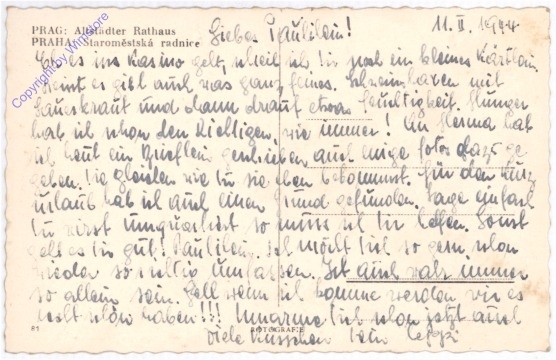 PRAG: Altstädter Rathaus
PRAHA: Staroměstská radnice
Copyright by Winistore
11. II. 1944
Liebes Paulilein!
Eh es ins Kasino geht, schreib ich Dir noch ein kleines Kärtlein.
Heint es gibt auch was ganz feines. Schweinhaxen mit
Sauerkraut und dann drauf etwas Feuchtigkeit. Hunger
hab ich schon den Richtigen, wie immer! An Herma hab
ich heut ein Brieflein geschrieben auch einige Fotos dazu ge
geben. Die gleichen wie Du sie eben bekommst. Für den Kurz
urlaub hab ich auch einen Grund gefunden. Sage einfach
Du wirst umquartiert so muss ich Dir helfen. Sonst
geht es Dir gut? Paulilein. Ich möcht Dich so gern schon
wieder so richtig umfassen. Ist auch nix immer
so allein sein. Gell wenn ich komme werden wir es
recht schön haben!!! Umarme Dich schon jetzt auch
viele Küsschen Dein
81
FOTOGRAFIE